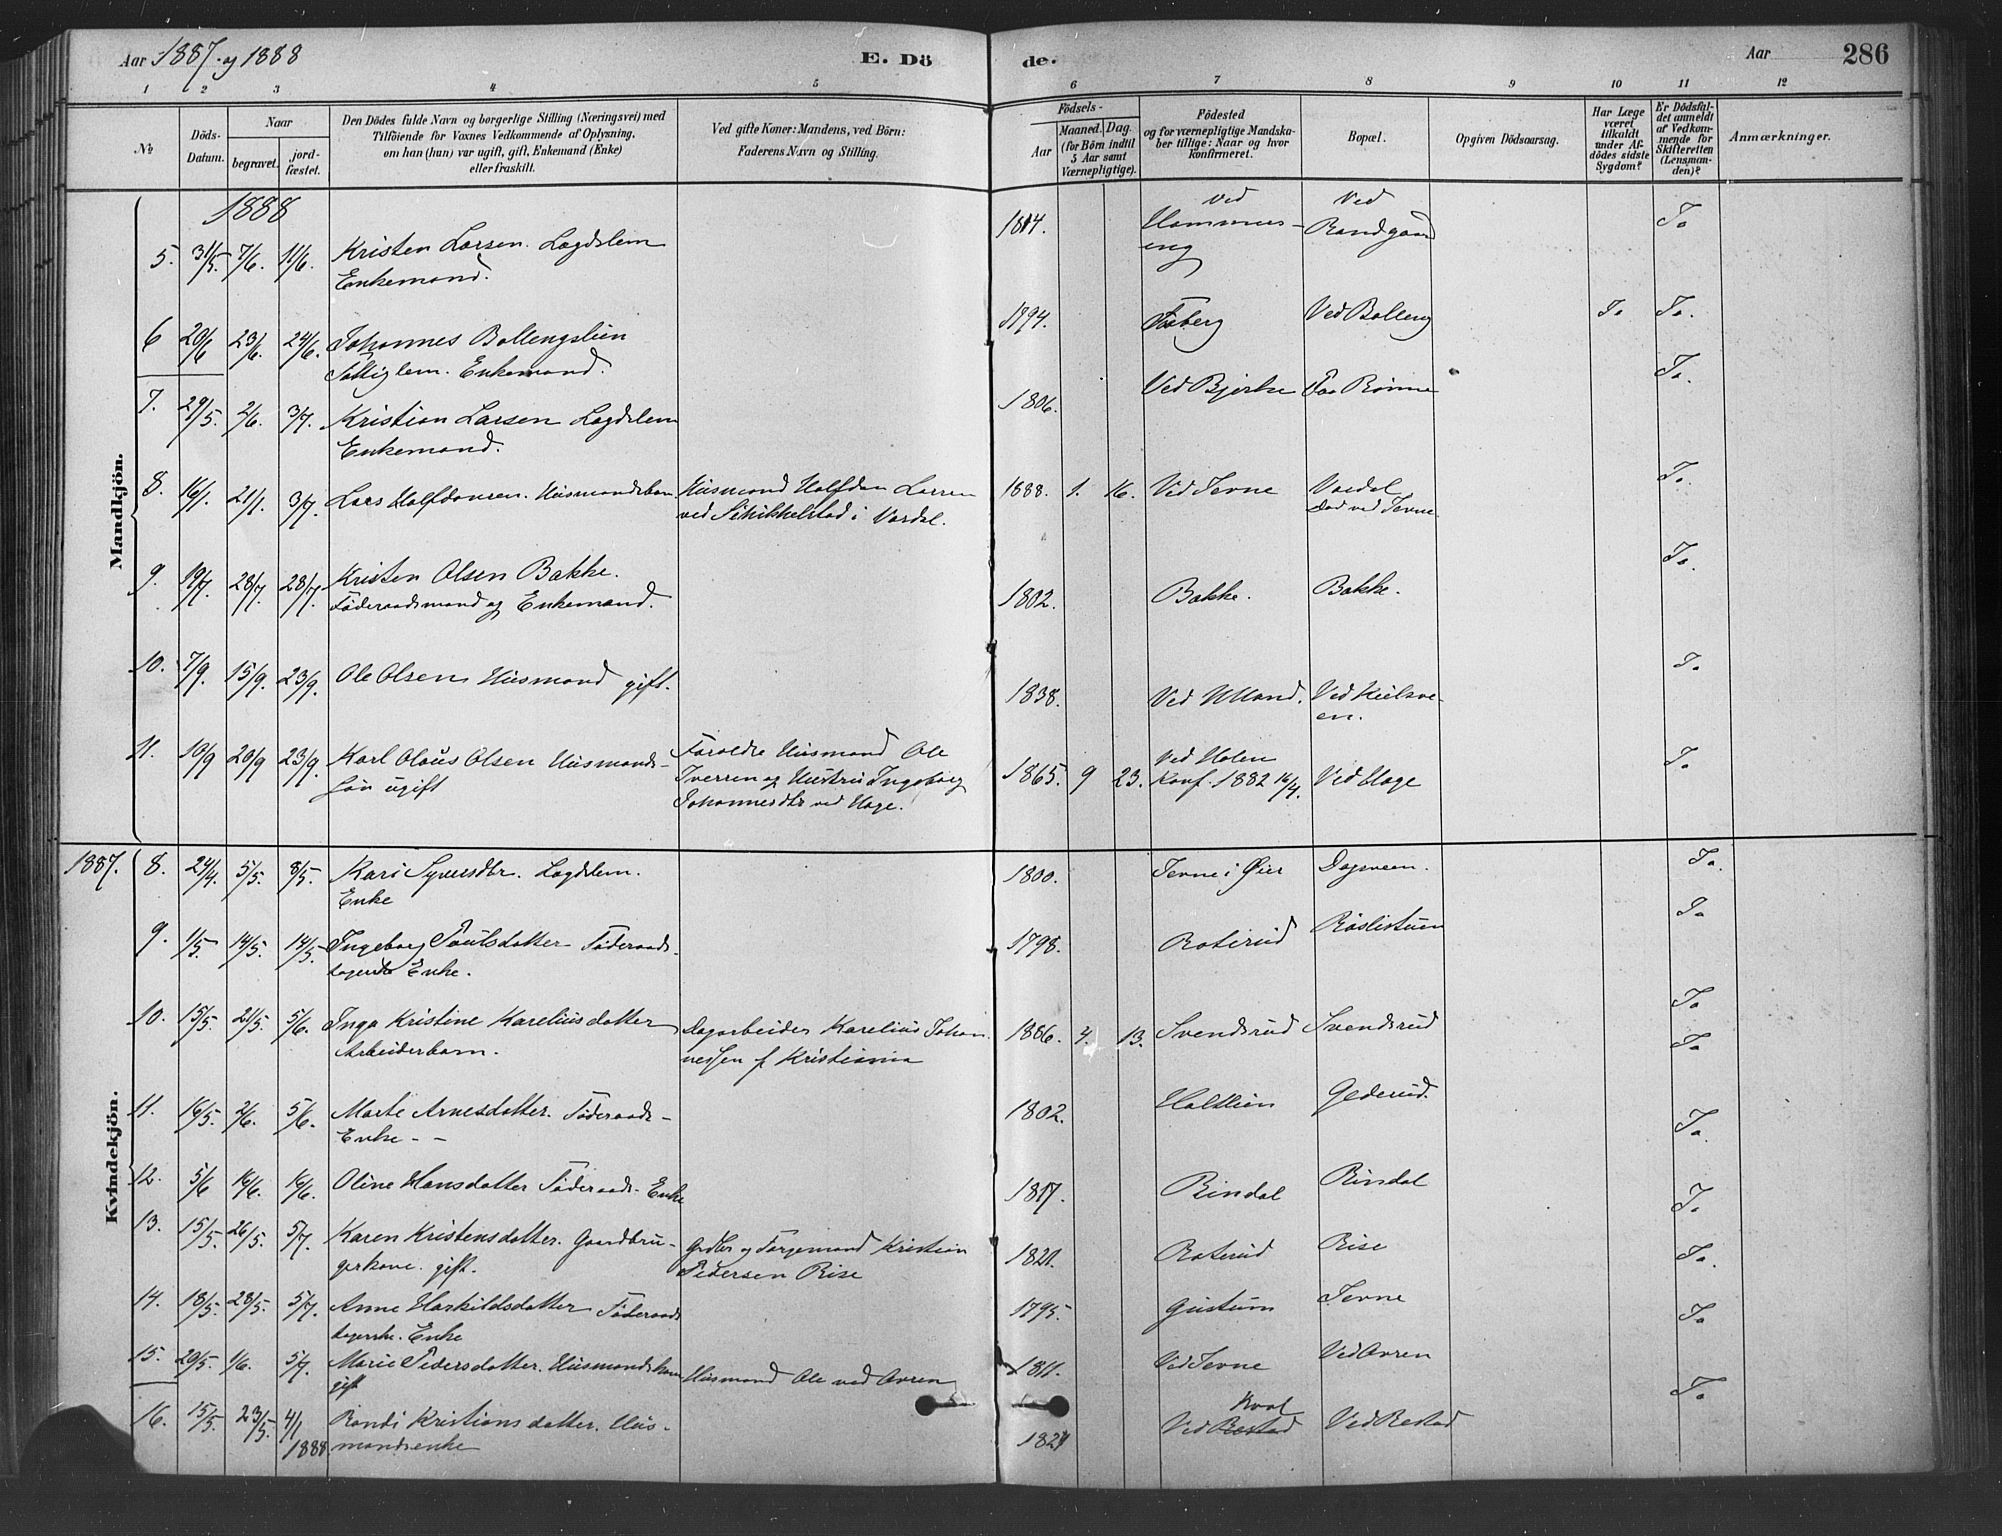 Aar 1887 og 1888
E. Döde.
Aar
286
1 2 3 4 5 6 7 8 9 10 11 12
No
Döds-Datum.
Naar
begravet.
jord-fæstet.
Den Dödes fulde Navn og borgerlige Stilling (Næringsvei) med
Tilföiende for Voxnes Vedkommende af Oplysning,
om han (hun) var ugift, gift, Enkemand (Enke)
eller fraskilt.
Ved gifte Koner: Mandens, ved Börn:
Faderens Navn og Stilling.
Födsels-
Aar
Maaned. Dag.
(for Börn indtil
5 Aar samt
Værnepligtige).
Födested
og for værnepligtige Mandska-
ber tillige: Naar og hvor
konfirmeret.
Bopæl.
Opgiven Dödsaarsag.
Har Læge
været
tilkaldt
under Af-
dödes sidste
Sygdom?
Er Dödsfal-
det anmeldt
af Vedkom-
mende for
Skifteretten
(Lensman-
den)?
Anmærkninger.
Mandkjön.
1888
5. 31/5. 7/6. 11/6. Kristen Larsen. Lægdslem
Enkemand.
1814. ved Hammers-
eng
Ved
Randgaard
Ja
6 20/6 23/6. 24/6. Johannes Bollengslien
Fattiglem. Enkemand.
1794. Faaberg Ved Bolleng Ja Ja.
7. 29/5. 2/6. 3/7. Kristian Larsen Lægdslem
Enkemand.
1806. Ved Bjerke Paa Rønne Ja.
8. 16/1. 21/1. 3/7. Lars Halfdansen. Husmandsbarn Husmand Halfdan Larsen
ved Schikkelstad i Vardal.
1888. 1. 16. Ved Jevne Vardal
død ved Jevne.
Ja.
9. 19/7. 28/7. 28/7. Kristen Olsen Bakke.
Føderaadsmand og Enkemand.
1802. Bakke. Bakke. Ja.
10. 7/9. 15/9. 23/9. Ole Olsen Husmand gift.
1838. Ved Ulland. Ved Kielsve-
en.
Ja
11. 10/9 20/9 23/9. Karl Olaus Olsen Husmands-
søn ugift
Forældre Husmand Ole
Iversen og Hustru Ingeborg
Johannesdtr ved Hage.
1865. 9 23. Ved Holen
Konf. 1882 16/4. Ved Hage Ja
Kvindekjön.
1887. 8. 24/4. 5/5. 8/5. Kari Syversdtr. Lægdslem.
Enke
1800. Jevne i Øier Dagsveen. Ja.
9. 1/5. 14/5. 14/5. Ingeborg Poulsdatter Føderaads-
tagerske Enke.
1798. Roterud Røslistuen Ja
10. 15/5. 21/5. 5/6. Inga Kristine Kareliusdatter
Arbeiderbarn.
Dagarbeider Karelius Johan
nessen f Kristiania
1886. 4. 13. Svendsrud Svendsrud Ja
Ja
11. 16/5. 2/6. 5/6. Marte Arnesdatter. Føderaads-
Enke - -
1802. Holtlien Gederud. Ja.
12. 5/6 16/6. 16/6. Oline Hansdatter Føderaads-Enke
1817. Rindal Rindal Ja
13. 15/5. 26/5. 5/7. Karen Kristensdatter. Gaardbru-
gerkone. gift.
Gdbr og Forgemand Kristian
Pedersen Rise
1821. Roterud Rise Ja.
14. 18/5. 28/5. 5/7. Anne Haskildsdatter Føderaads
tagerske. Enke
1795. Gustum Jevne Ja
15. 29/5. 1/6. 5/7. Marie Pedersdatter. Husmandskone
gift
Husmand Ole ved Avren
1811. Ved Jevne Ved Avren
16. 15/5. 23/5. 4/1 1888. Randi Kristiansdatter. Hus-
mandsenke
1824 Kval
Ved Restad Ved Restad Ja